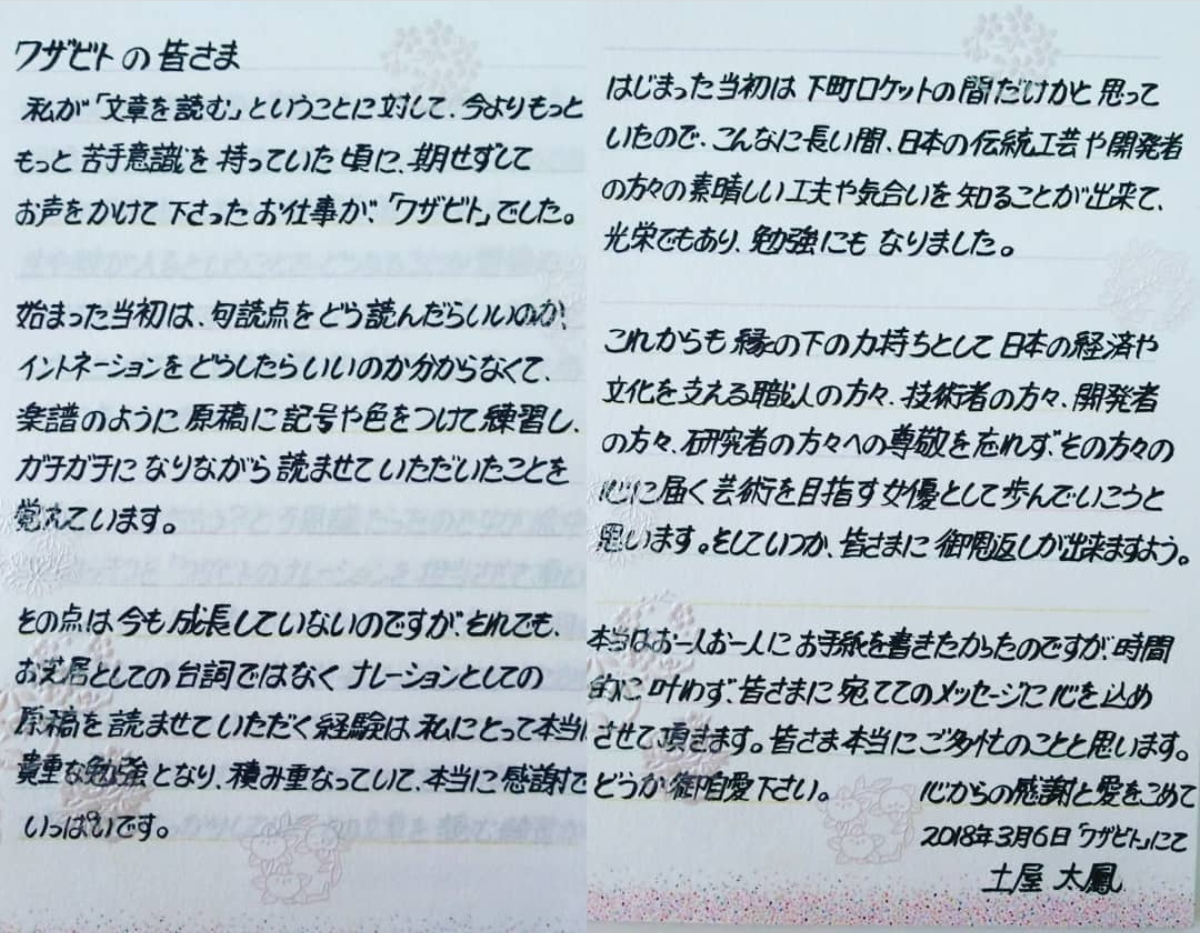 ワザビトの皆さま
私が「文章を読む」ということに対して、今よりもっと
もっと苦手意識を持っていた頃に、期せずして
お声をかけて下さったお仕事が、「ワザビト」でした。
始まった当初は、句読点をどう読んだらいいのか、
イントネーションをどうしたらいいのか分からなくて、
楽譜のように原稿に記号や色をつけて練習し、
ガチガチになりながら読ませていただいたことを
覚えています。
その点は今も成長していないのですが、それでも、
お芝居としての台詞ではなくナレーションとしての
原稿を読ませていただく経験は私にとって本当に
貴重な勉強となり、積み重なっていて、本当に感謝で
いっぱいです。
はじまった当初は下町ロケットの間だけかと思って
いたので、こんなに長い間、日本の伝統工芸や開発者
の方々の素晴しい工夫や気合いを知ることが出来て、
光栄でもあり、勉強にもなりました。
これからも縁の下の力持ちとして日本の経済や
文化を支える職人の方々、技術者の方々、開発者
の方々、研究者の方々への尊敬を忘れず、その方々の
心に届く芸術を目指す女優として歩んでいこうと
思います。そしていつか、皆さまに御恩返しが出来ますよう。
本当はお一人お一人にお手紙を書きたかったのですが、時間
的に叶わず、皆さまに宛ててのメッセージに心を込め
させて頂きます。皆さま本当にご多忙のことと思います。
どうか御自愛下さい。
心からの感謝と愛をこめて
2018年3月6日「ワザビト」にて
土屋 太鳳